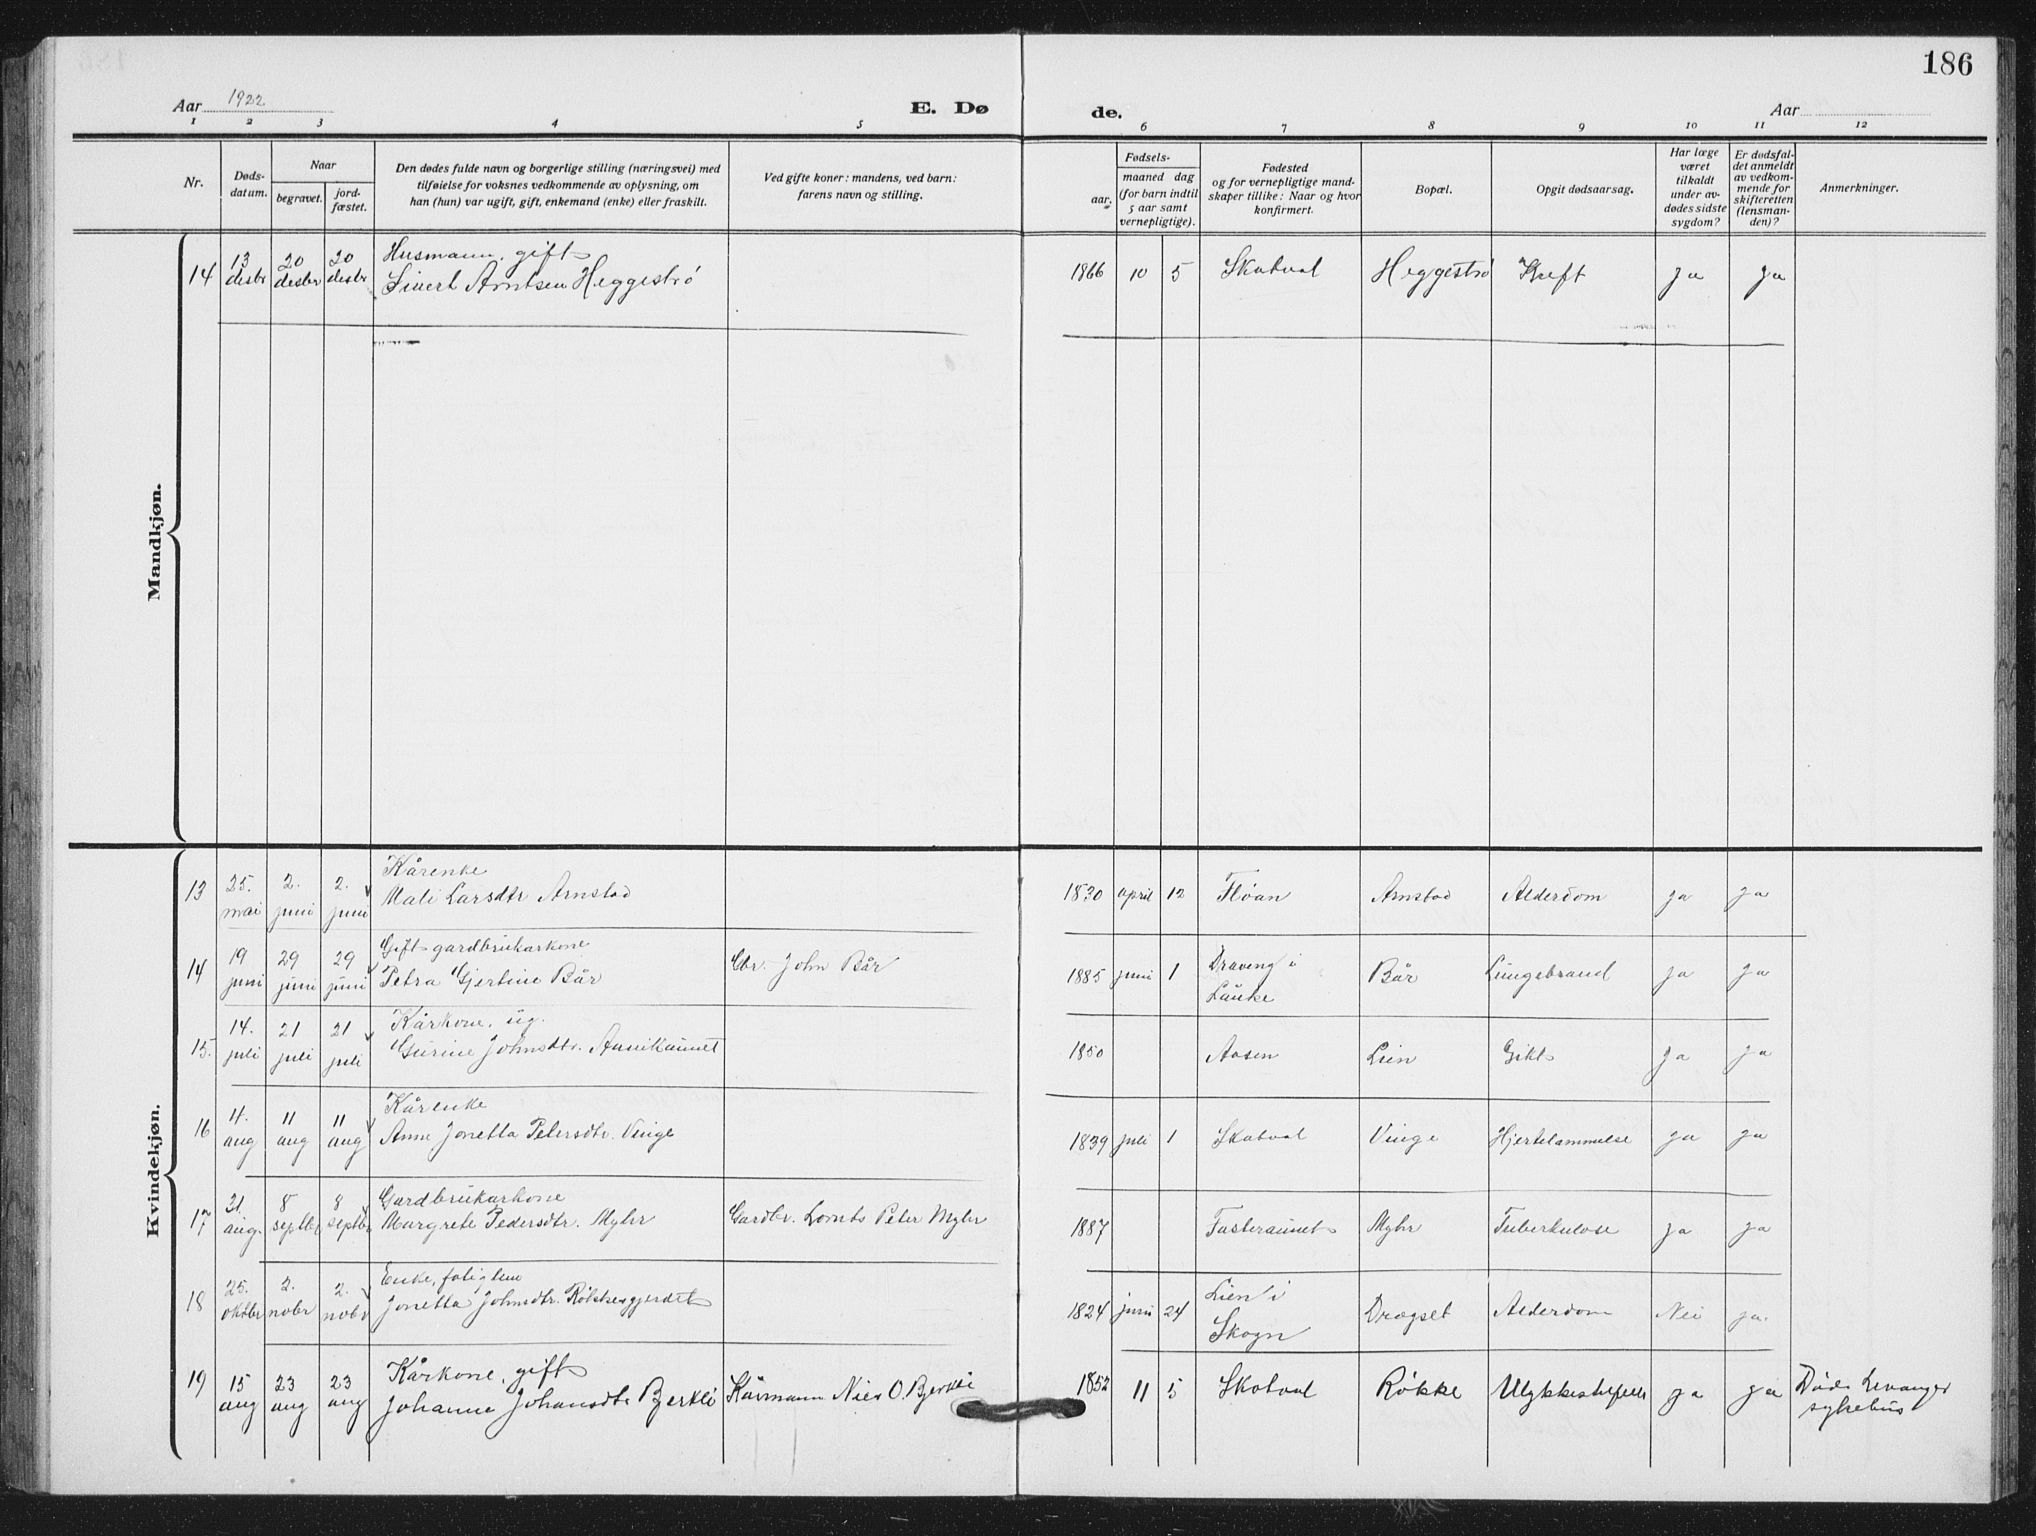 186
Aar 1922
E. Dø
de.
Aar
1 2 3 4 5 6 6 7 8 9 10 11 12
Nr.
Døds-
datum.
Naar
begravet.
jord-
fæstet.
Den dødes fulde navn og borgerlige stilling (næringsvei) med
tilføielse for voksnes vedkommende av oplysning, om
han (hun) var ugift, gift, enkemand (enke) eller fraskilt.
Ved gifte koner: mandens, ved barn:
farens navn og stilling.
Fødsels-
aar. maaned dag
(for barn indtil
5 aar samt
vernepligtige).
Fødested
og for vernepligtige mand-
skaper tillike: Naar og hvor
konfirmert.
Bopæl.
Opgit dødsaarsag.
Har læge
været
tilkaldt
under av-
dødes sidste
sygdom?
Er dødsfal-
det anmeldt
av vedkom-
mende for
skifteretten
(lensman-
den)?
Anmerkninger.
Mandkjøn.
13 20 20 Husmann, gift
14 desbr desbr desbr Sivert Arntsen Heggestrø 1866 10 5 Skatval Heggestrø Kreft ja ja
Kvindekjøn.
25. 2. 2. Kårenke
13 mai juni juni Mali Larsdtr Arnstad 1830 april 12 Fløan Arnstad Alderdom ja ja
19 29 29 Gift gardbrukarkone
14 juni juni juni Petra Gjertine Bår Gbr. John Bår 1885 juni 1 Draveng i Bår Lungebrand ja ja
Lånke
14. 21 21 Kårkone, ug.
15. juli juli juli Gurine Johnsdtr. 1850 Aasen Lien Gikt ja ja
4. 11 11 Kårenke
16 aug aug aug Anne Jonetta Petersdtr. Vinge 1839 juli 1 Skatval Vinge Hjertelammelse ja ja
31. 8 8 Gardbrukarkone
17 aug. septbr septbr Margrete Pedersdtr. Myhr Gardbr. Lornts Peter Myhr 1887 Fasteraunet Myhr Tuberkulose ja ja
25. 2. 2. Enke, fatiglem
18 oktbr nobr nobr Jonetta Johnsdtr. 1824 juni 24 Lien i Dragset Alderdom Nei ja.
Skogn
15 23 23 Kårkone, gift
19 aug aug aug Johanna Johansdtr Bjerkli Kårmann O. Bjerkli 1852 11 5 Skatval Røkke ja ja Død i Levanger
sykehus